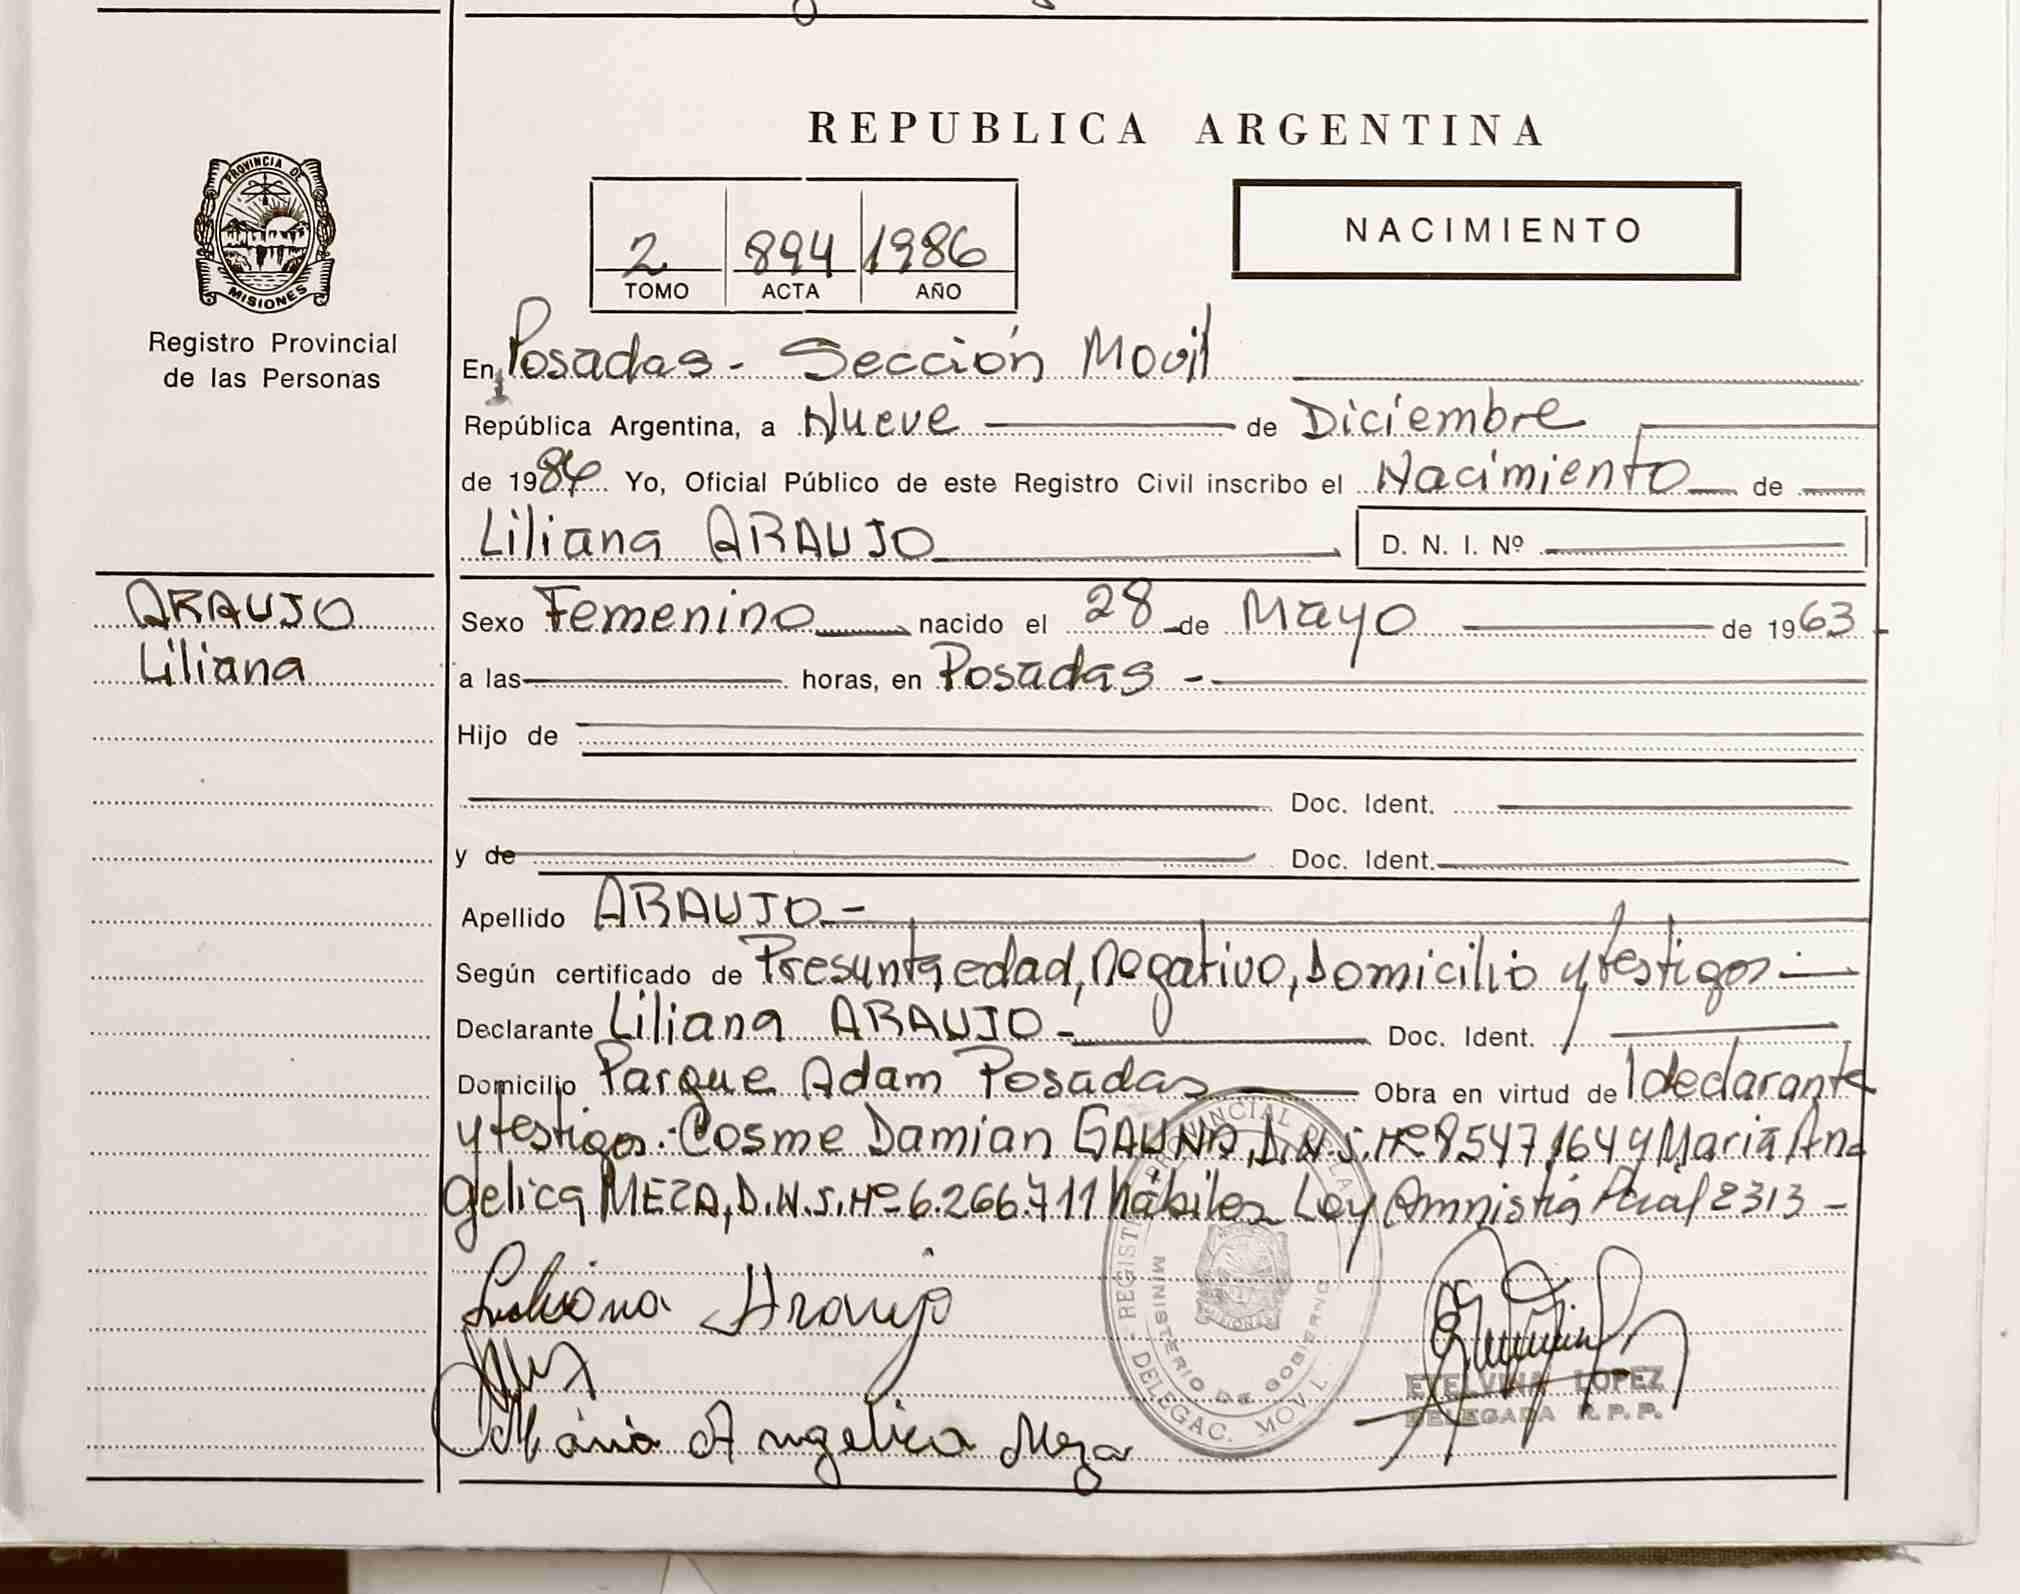 REPUBLICA ARGENTINA
PROVINCIA DE
MISIONES
Registro Provincial
de las Personas
2 894 1986
TOMO ACTA AÑO
NACIMIENTO
En Posadas - Sección Movil
República Argentina, a Nueve de Diciembre
de 1986 Yo, Oficial Público de este Registro Civil inscribo el Nacimiento de
Liliana ARAUJO D. N. I. Nº
ARAUJO
Liliana
Sexo Femenino nacido el 28 de Mayo de 1963
a las horas, en Posadas -
Hijo de
Doc. Ident.
y de Doc. Ident.
Apellido ARAUJO -
Según certificado de Presunta edad, negativo, Domicilio y testigos -
Declarante Liliana ARAUJO - Doc. Ident.
Domicilio Parque Adam Posadas Obra en virtud de l declarante
y testigos: Cosme Damian GAUNA, D.N.I. Nº 8.547.164 y Maria An
gelica MEZA, D.N.I. Nº 6.266.711 hábiles Ley Amnistia 2313 -
Liliana Araujo
María Angelica Meza
REGISTRO PROVINCIAL DE LAS
DELEGAC. MOVIL
MINISTERIO DE GOBIERNO
ETELVINA LOPEZ
DELEGADA R. P. P.